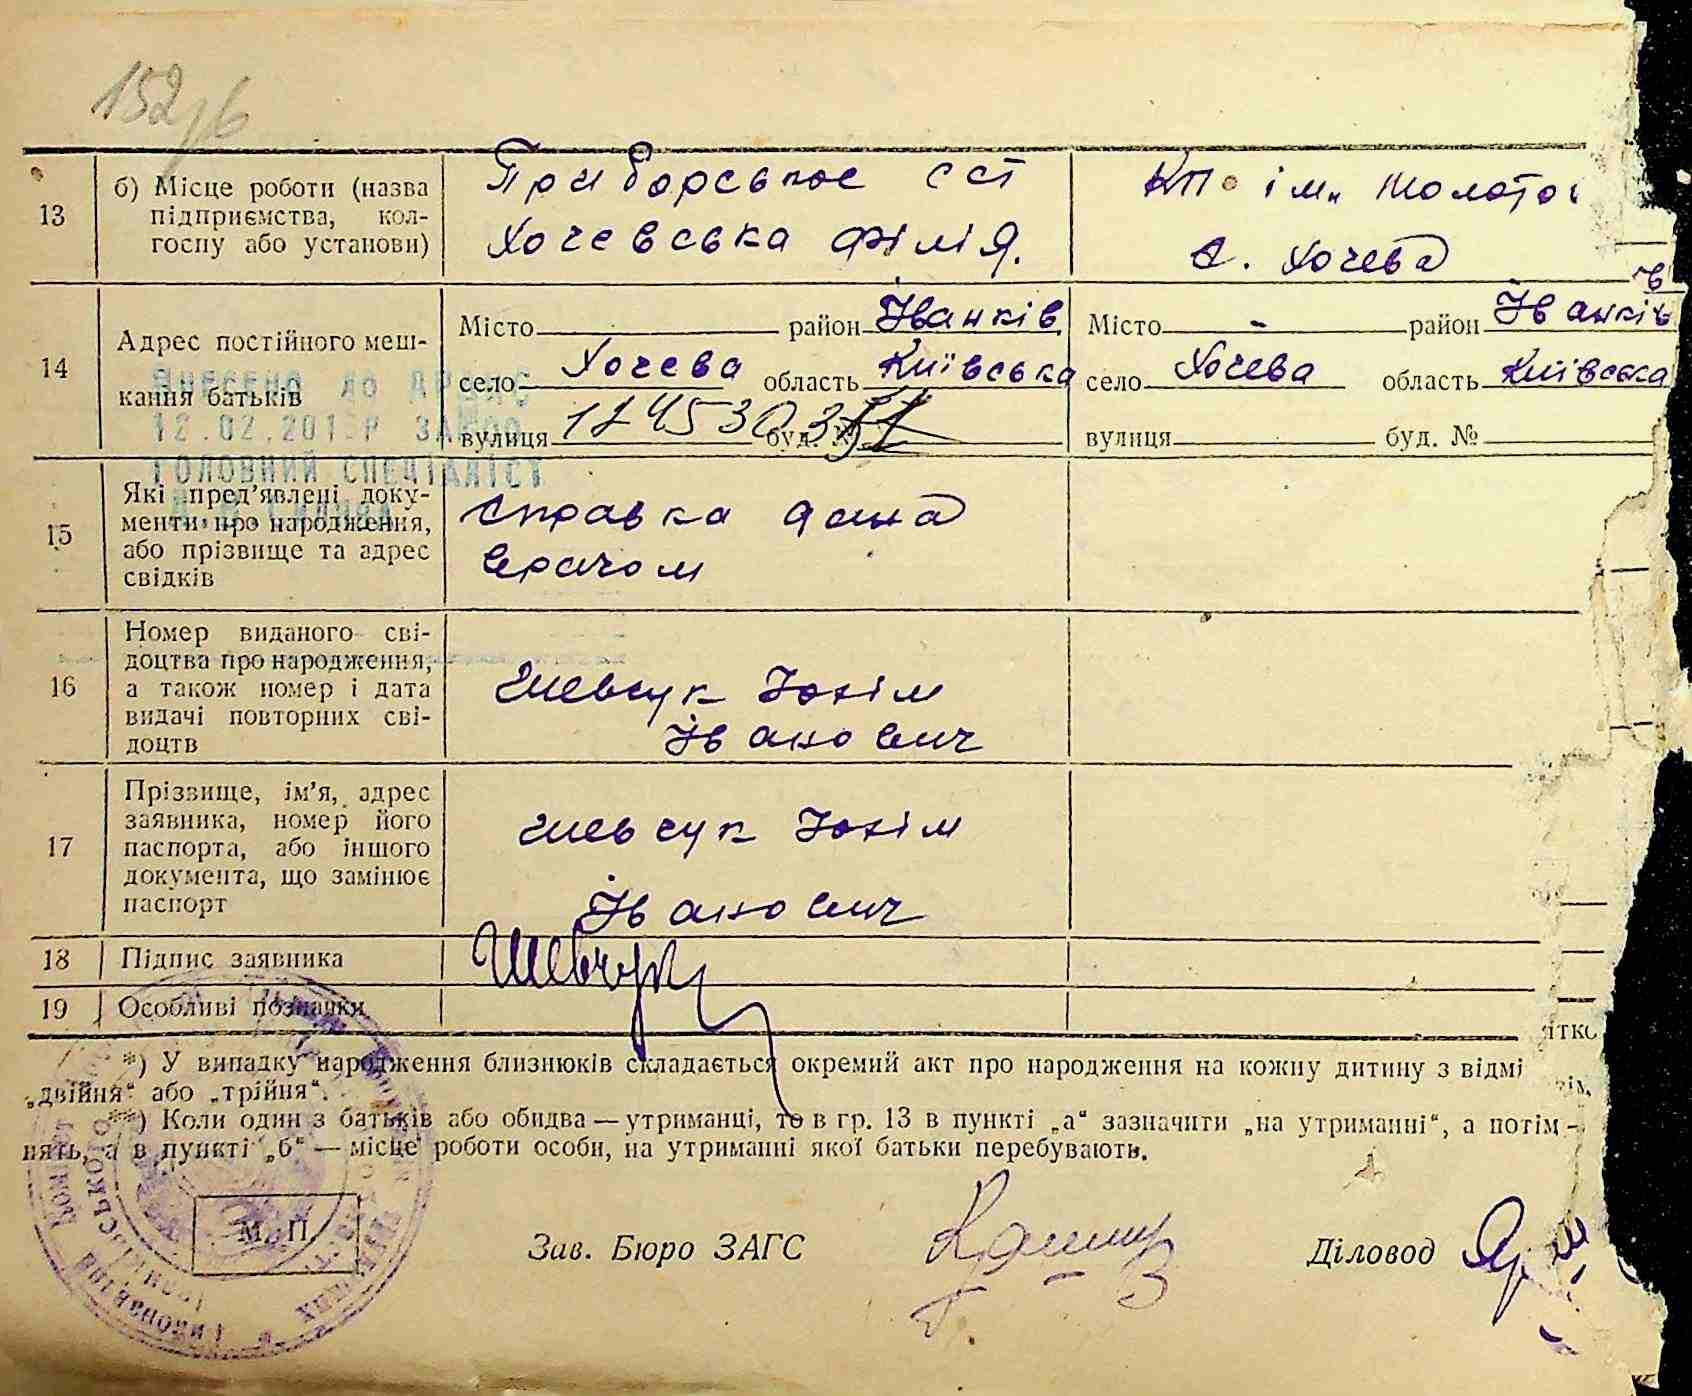 152зв
13
б) Місце роботи (назва
підприємства, кол-
госпу або установи)
Приборське ССТ
Хочевська філія.
КП ім. Молото
с. Хочева
14
Адрес постійного меш-
кання батьків
Місто район Іванків
село Хочева область Київська
вулиця буд. №
Місто - район Іванків
село Хочева область Київська
вулиця буд. №
Внесено до ДРАЦС
12.02.201
ГОЛОВНИЙ СПЕЦІАЛІСТ
15
Які пред'явлені доку-
менти про народження,
або прізвище та адрес
свідків
Справка дана
врачом
16
Номер виданого сві-
доцтва про народження,
а також номер і дата
видачі повторних сві-
доцтв
Шевчук Юхім
Іванович
17
Прізвище, ім'я, адрес
заявника, номер його
паспорта, або іншого
документа, що замінює
паспорт
Шевчук Юхім
Іванович
18
Підпис заявника
Шевчук
19
Особливі позначки
*) У випадку народження близнюків складається окремий акт про народження на кожну дитину з відмі
„двійня“ або „трійня“.
**) Коли один з батьків або обидва — утриманці, то в гр. 13 в пункті „а“ зазначити „на утриманні“, а потім
нять, а в пункті „б“ — місце роботи особи, на утриманні якої батьки перебувають.
М. П.
Зав. Бюро ЗАГС
Діловод